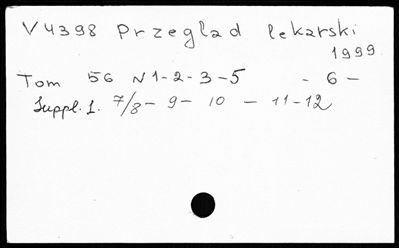 V 4398 Przeglad lekarski
1999
Tom 56 N 1-2-3-5 - 6 -
Suppl. 1. 7/8 - 9 - 10 - 11-12